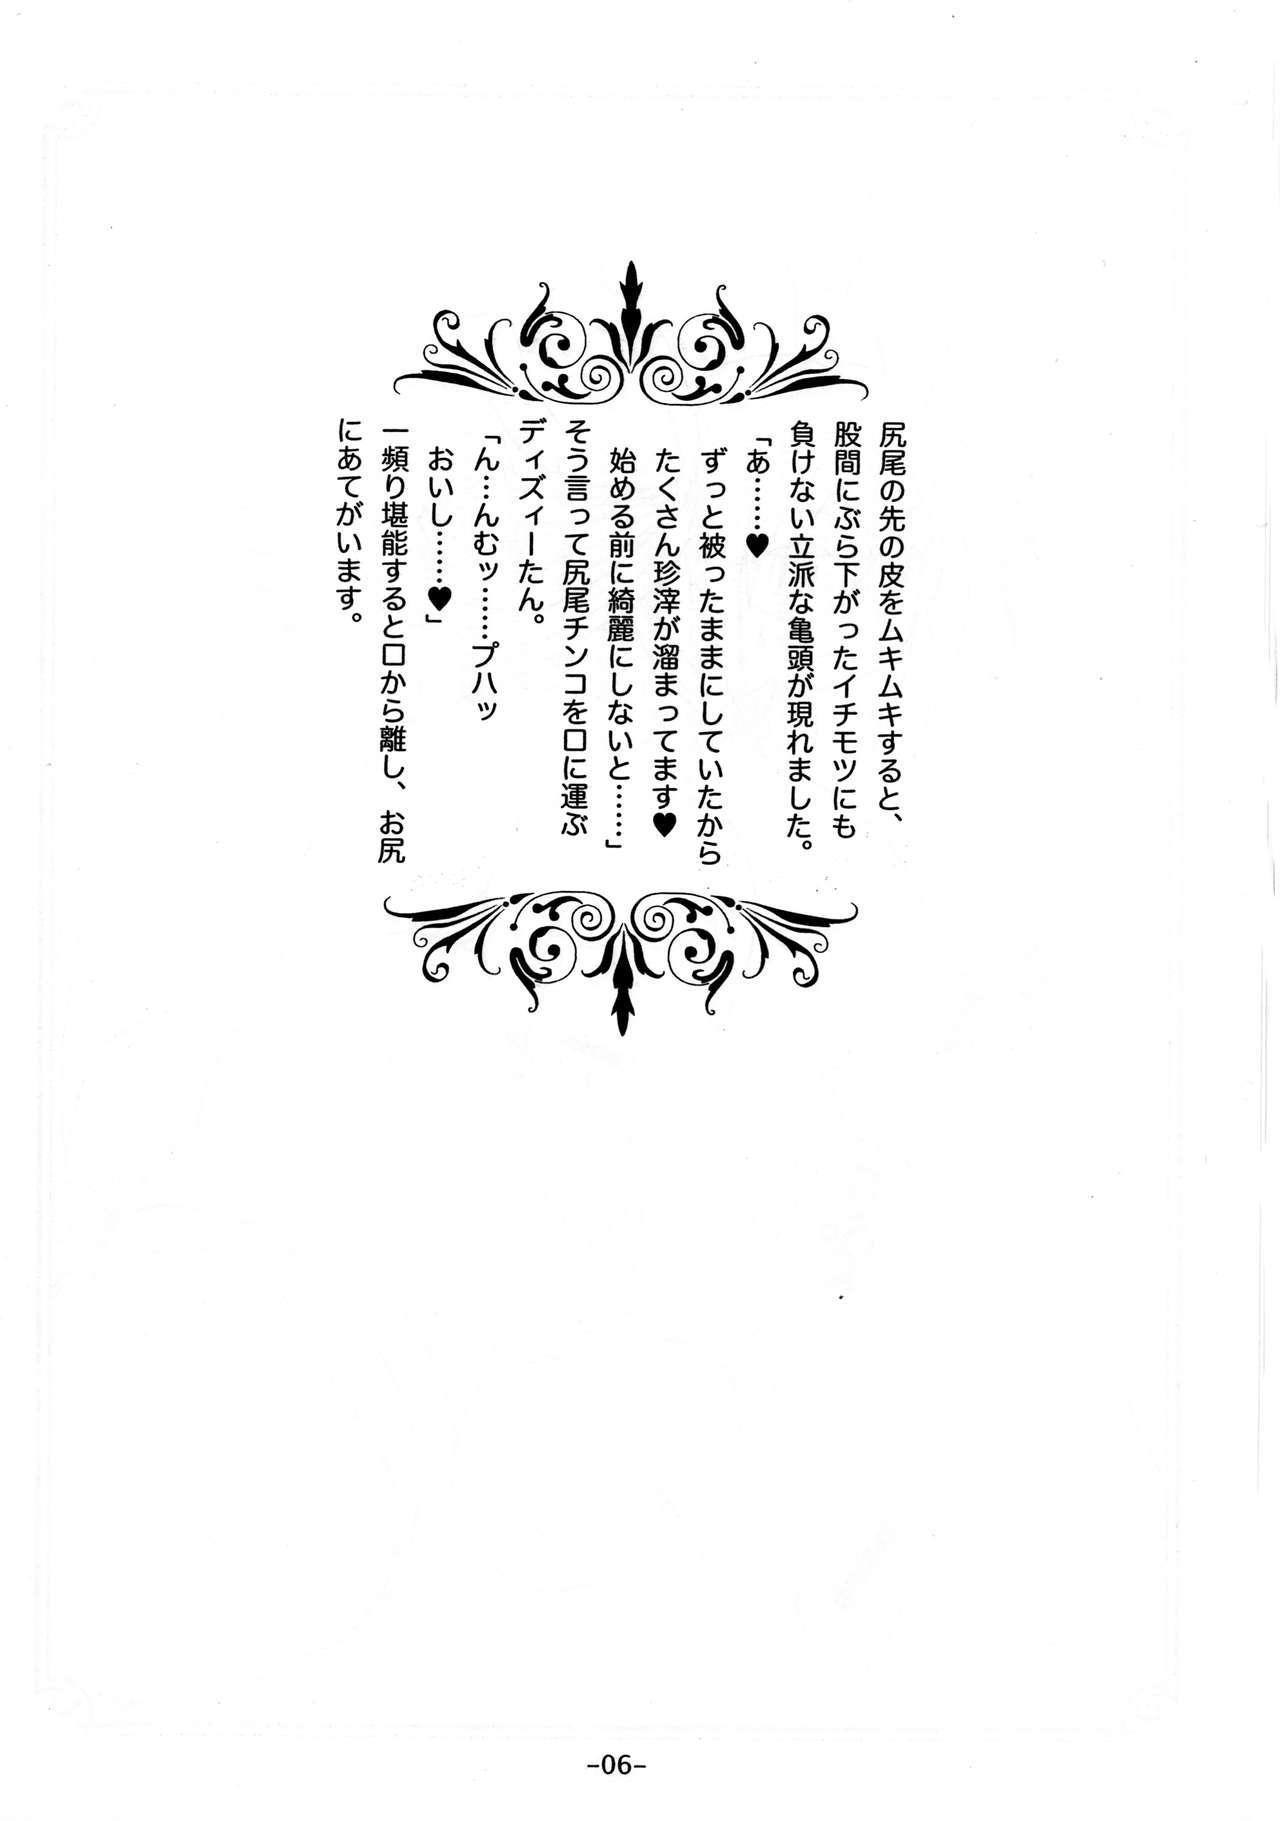 尻尾の先の皮をムキムキすると、
股間にぶら下がったイチモツにも
負けない立派な亀頭が現れました。
「あ……♥
ずっと被ったままにしていたから
たくさん珍滓が溜まってます♥
始める前に綺麗にしないと……」
そう言って尻尾チンコを口に運ぶ
ディズィーたん。
「ん…んむッ……プハッ
おいし……♥」
一頻り堪能すると口から離し、お尻
にあてがいます。
-06-